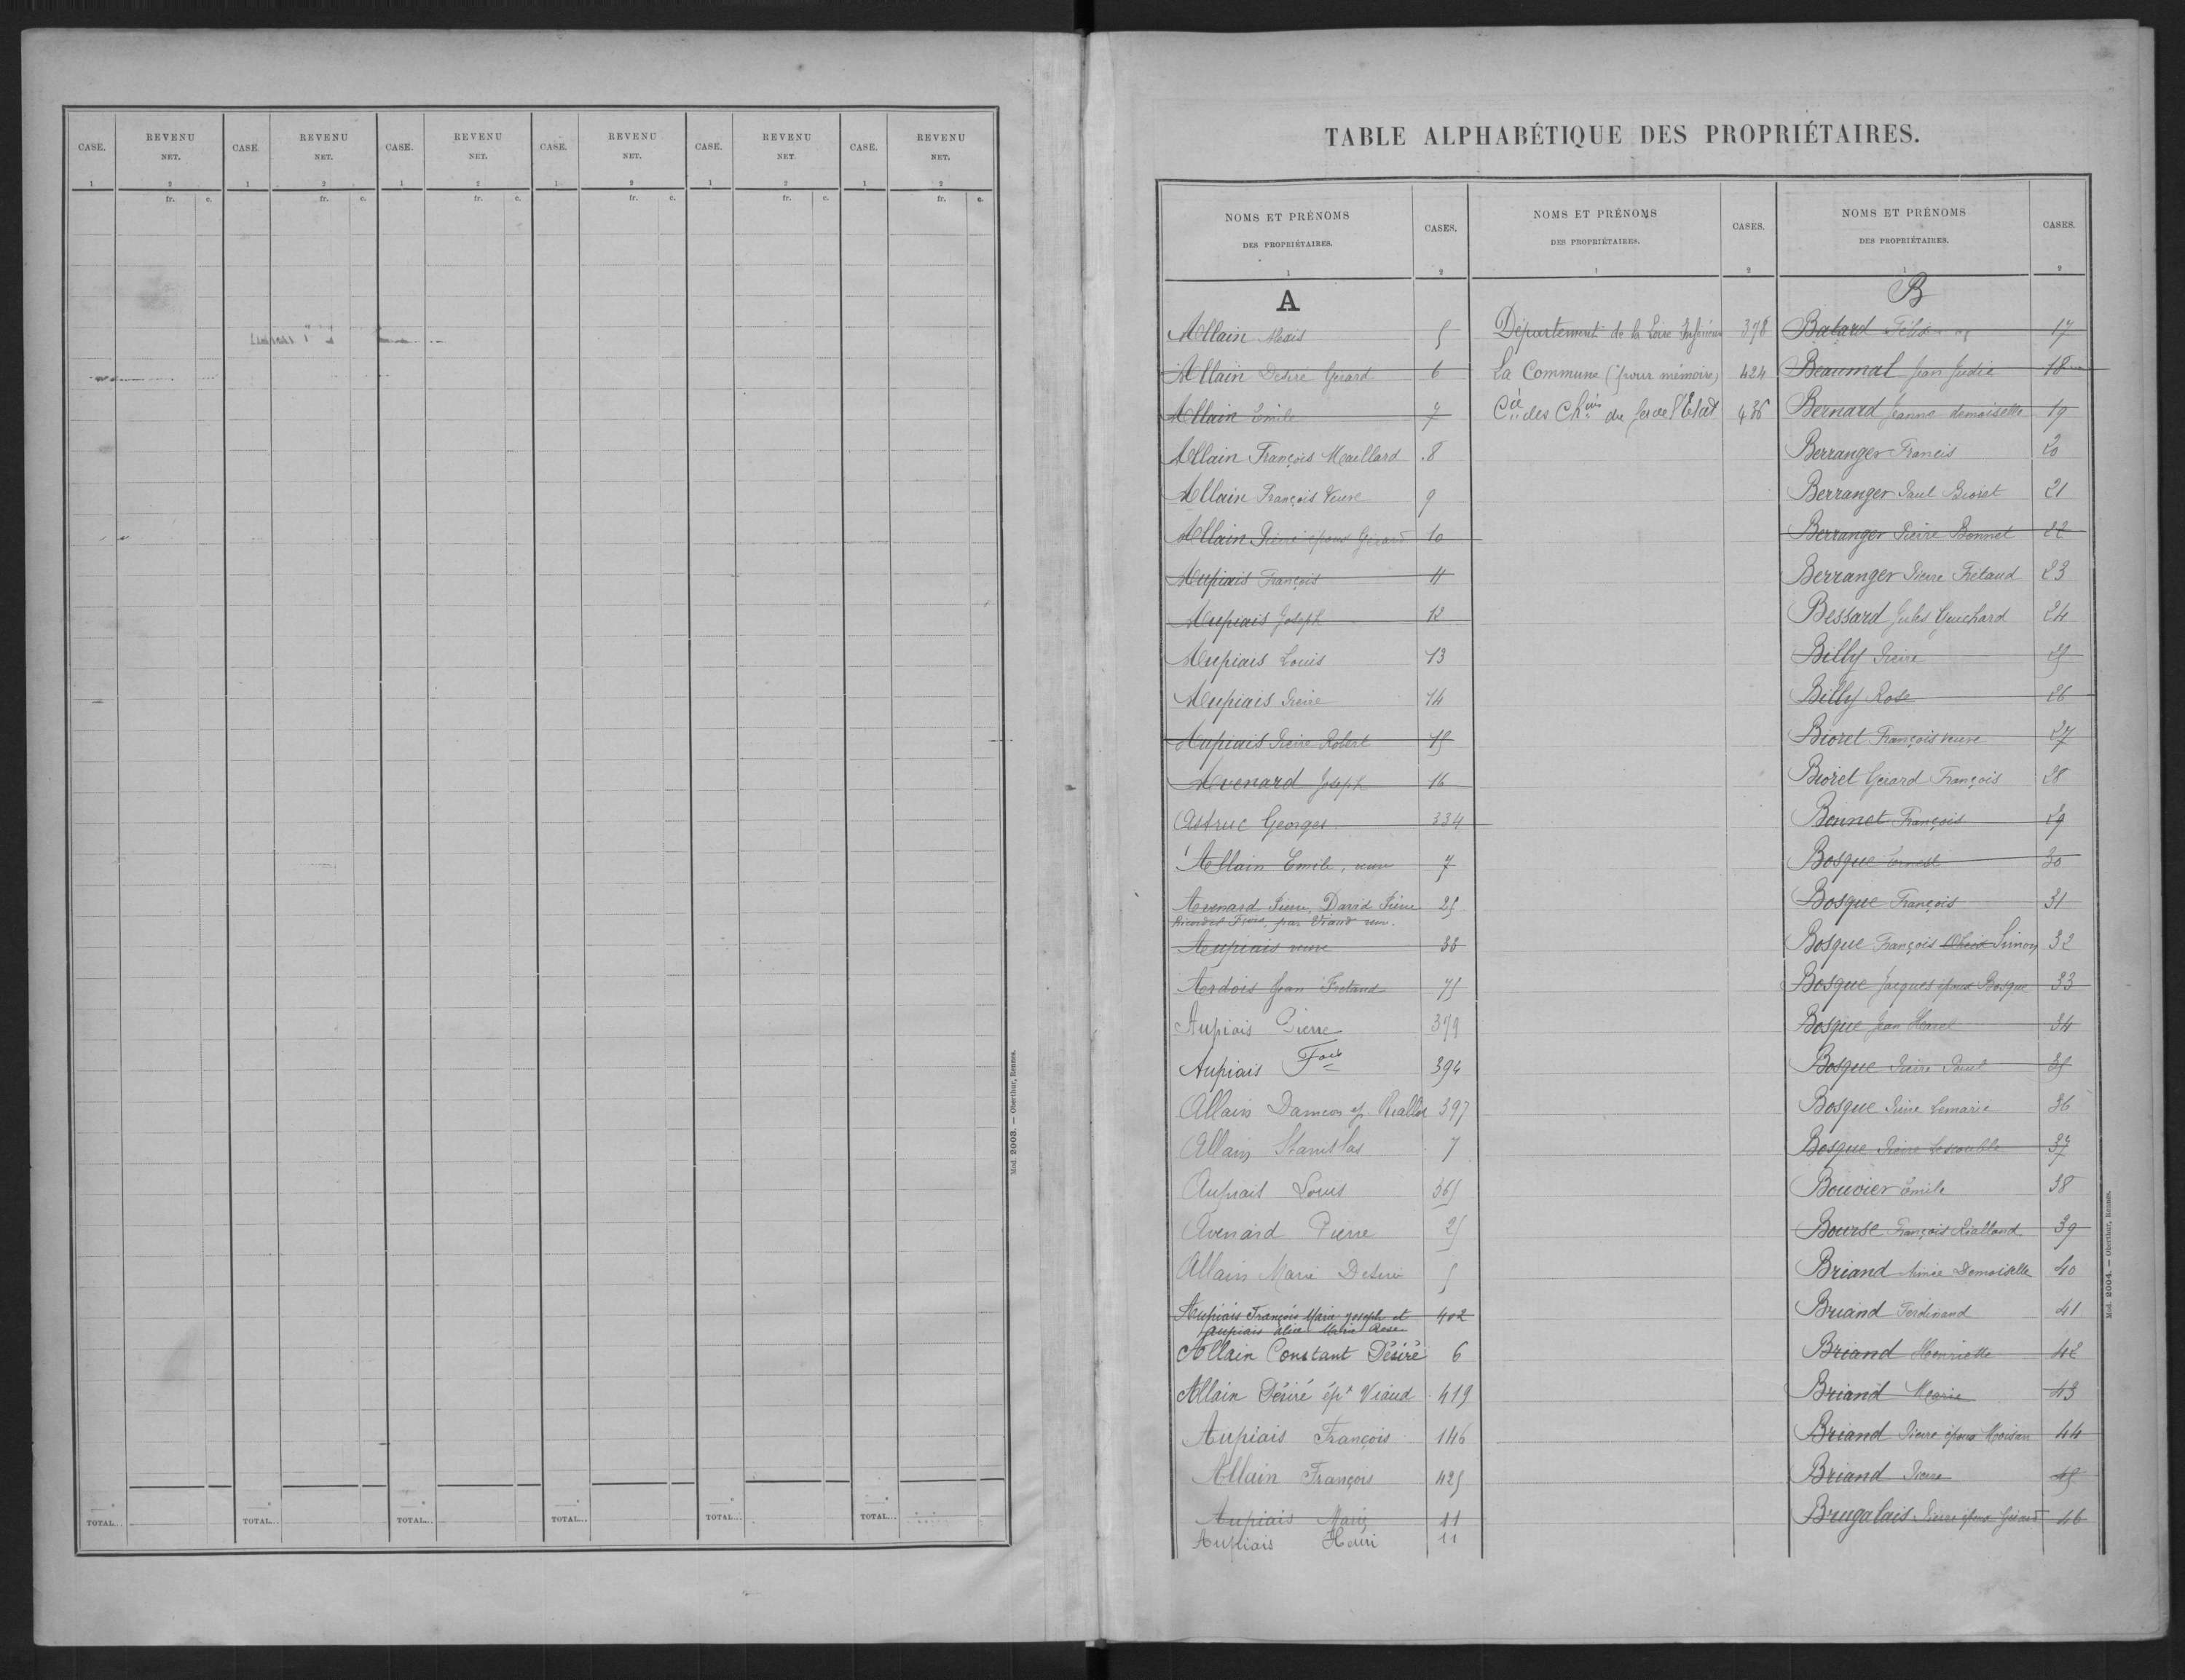 CASE. REVENU NET. CASE. REVENU NET. CASE. REVENU NET. CASE. REVENU NET. CASE. REVENU NET. CASE. REVENU NET.
1 2 1 2 1 2 1 2 1 2 1 2
fr. c. fr. c. fr. c. fr. c. fr. c. fr. c.
TOTAL... TOTAL... TOTAL... TOTAL... TOTAL... TOTAL...
Mod. 2003. — Oberthur, Rennes.
TABLE ALPHABÉTIQUE DES PROPRIÉTAIRES.
NOMS ET PRÉNOMS DES PROPRIÉTAIRES. CASES. NOMS ET PRÉNOMS DES PROPRIÉTAIRES. CASES. NOMS ET PRÉNOMS DES PROPRIÉTAIRES. CASES.
1 2 1 2 1 2
A
Allain Alexis 5
Allain Désiré Gérard 6
Allain Emile 7
Allain François Maillard 8
Allain François Veuve 9
Allain Pierre époux Gérard 10
Aupiais François 11
Aupiais Joseph 12
Aupiais Louis 13
Aupiais Pierre 14
Aupiais Pierre Robert 15
Avenard Joseph 16
Astruc Georges 334
Allain Emile, veuve 7
Avenard Pierre, David Pierre 25
par Viaud
Aupiais veuve 38
Ardois Jean Frotand 75
Aupiais Pierre 379
Aupiais Fois 394
Allain Damien ep. 397
Allain Stanislas 7
Aupiais Louis 365
Avenard Pierre 25
Allain Marie Désiré 5
Aupiais François Marie Joseph et 402
Aupiais Alice Marie Rose
Allain Constant Désiré 6
Allain Désiré épx Viaud 419
Aupiais François 146
Allain François 425
Aupiais Marie 11
Aupiais Henri 11
Département de la Loire Inférieure 378
La Commune (pour mémoire) 424
Cie des Chins de fer de l'Etat 436
B
Batard 17
Beaumal Jean 18
Bernard Jeanne demoiselle 19
Berranger Francis 20
Berranger Paul Bioret 21
Berranger Pierre Bonnet 22
Berranger Pierre Frelaud 23
Bessard Jules Guichard 24
Billy Pierre 25
Billy Rose 26
Bioret François veuve 27
Bioret Gérard François 28
Bonnet François 29
Bosque Ernest 30
Bosque François 31
Bosque François Simon 32
Bosque Jacques époux Bosque 33
Bosque Jean Harel 34
Bosque Pierre Paul 35
Bosque Pierre Lemarié 36
Bosque Pierre 37
Bouvier Emile 38
Bourse François Rialland 39
Briand Aimée Demoiselle 40
Briand Ferdinand 41
Briand Henriette 42
Briand Marie 43
Briand Pierre époux Moisan 44
Briand Pierre 45
Brugalais Pierre époux Gérard 46
Mod. 2004. — Oberthur, Rennes.